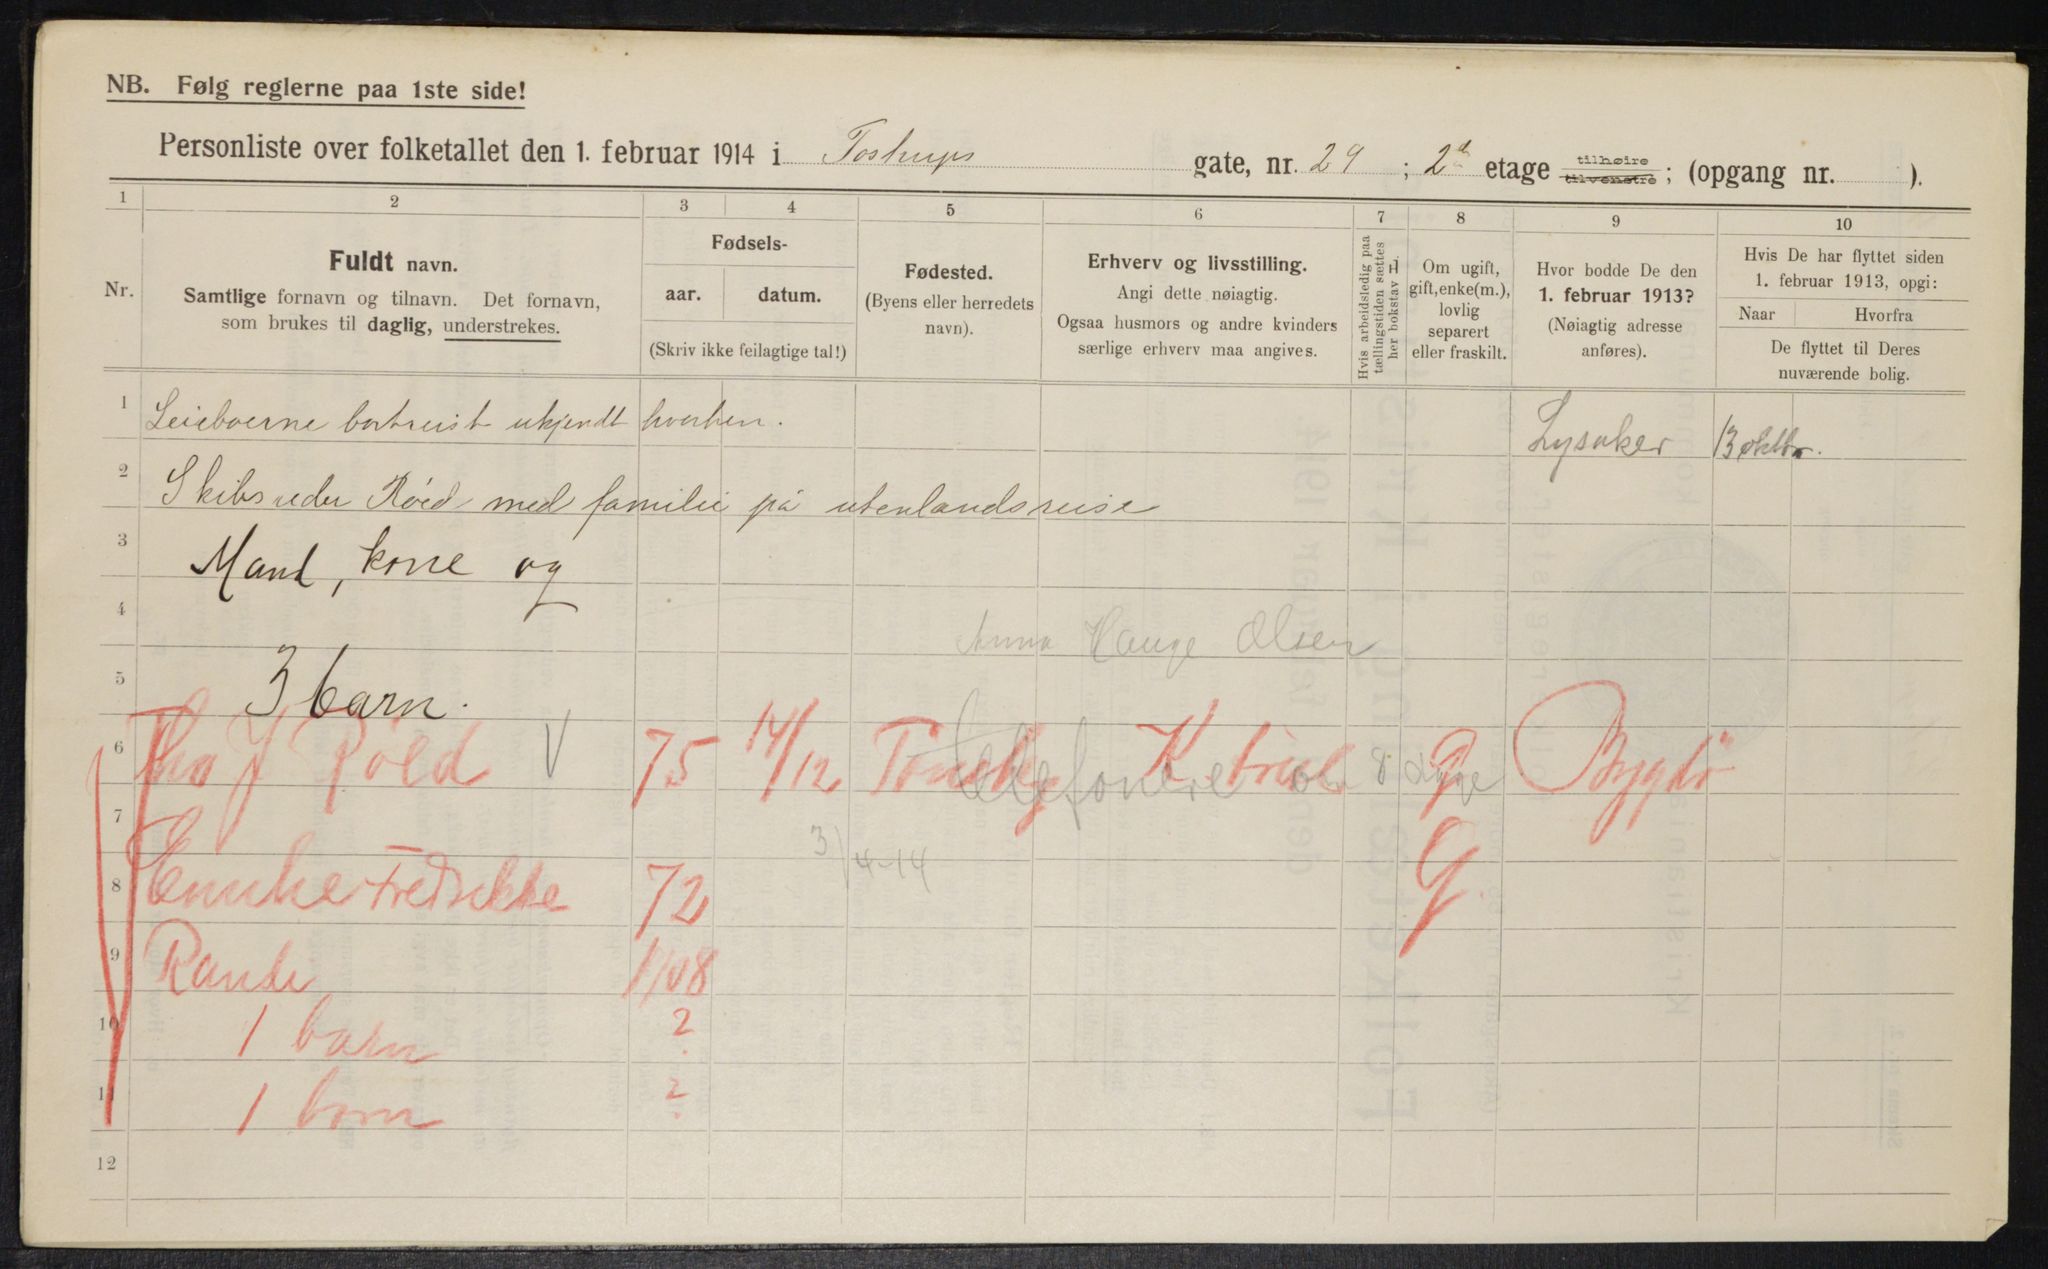 NB. Følg reglerne paa 1ste side!
Personliste over folketallet den 1. februar 1914 i Tostrups gate, nr. 29 ; 2d etage tilhøire tilvenstre ; (opgang nr. ).
1 2 3 4 5 6 7 8 9 10
Nr.
Fuldt navn.
Samtlige fornavn og tilnavn. Det fornavn,
som brukes til daglig, understrekes.
Fødsels-
aar. datum.
(Skriv ikke feilagtige tal!)
Fødested.
(Byens eller herredets
navn).
Erhverv og livsstilling.
Angi dette nøiagtig.
Ogsaa husmors og andre kvinders
særlige erhverv maa angives.
Hvis arbeidsledig paa
tællingstiden sættes
her bokstav L.
Om ugift,
gift, enke(m.),
lovlig
separert
eller fraskilt.
Hvor bodde De den
1. februar 1913?
(Nøiagtig adresse
anføres).
Hvis De har flyttet siden
1. februar 1913, opgi:
Naar Hvorfra
De flyttet til Deres
nuværende bolig.
1 Leieboerne bortreist ukjendt hvorhen. Lysaker 13 oktbr.
2 Skibsreder Röed med familie på utenlandsreise
3 Mand, kone og
4
Anna Hauge Olsen
5 3 barn.
6 Tho J Röed V 75 14/12 Tönsbg G Bygdö
telefonere om 8 dage
7
3/4-14
8 Fredrikke 72 G.
9 1/08
10 1 barn ?
11 1 barn ?
12